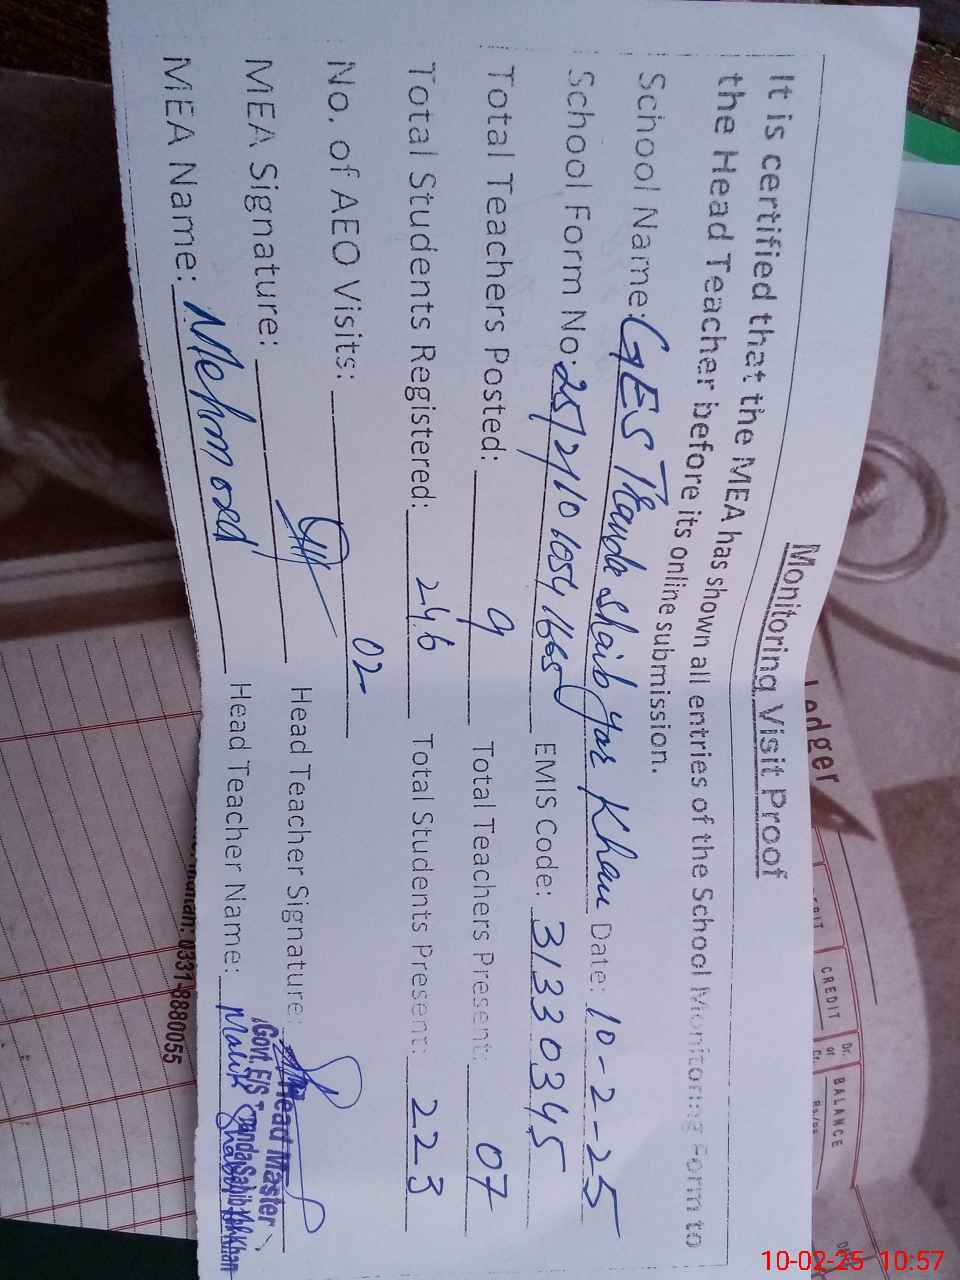 Monitoring Visit Proof
It is certified that the MEA has shown all entries of the School Monitoring Form to
the Head Teacher before its online submission.
School Name: GES Thanda Shaib yar Khan Date: 10-2-25
School Form No: EMIS Code: 31330345
Total Teachers Posted: 9 Total Teachers Present: 07
Total Students Registered: 246 Total Students Present: 223
No. of AEO Visits: 02
MEA Signature: Head Teacher Signature:
MEA Name: Mehmood Head Teacher Name: Malik
Head Master
Govt. E/S
Ledger
CREDIT
Dr. or Cr.
BALANCE
0331-8880055
10-02-25 10:57